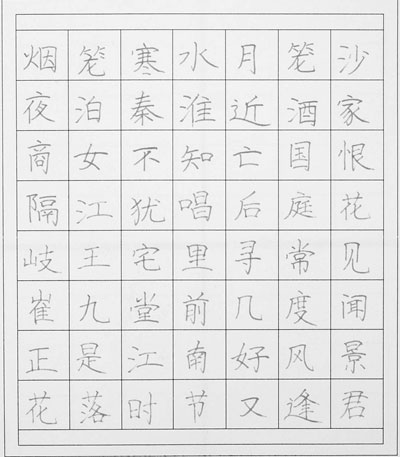 烟笼寒水月笼沙
夜泊秦淮近酒家
商女不知亡国恨
隔江犹唱后庭花
岐王宅里寻常见
崔九堂前几度闻
正是江南好风景
花落时节又逢君